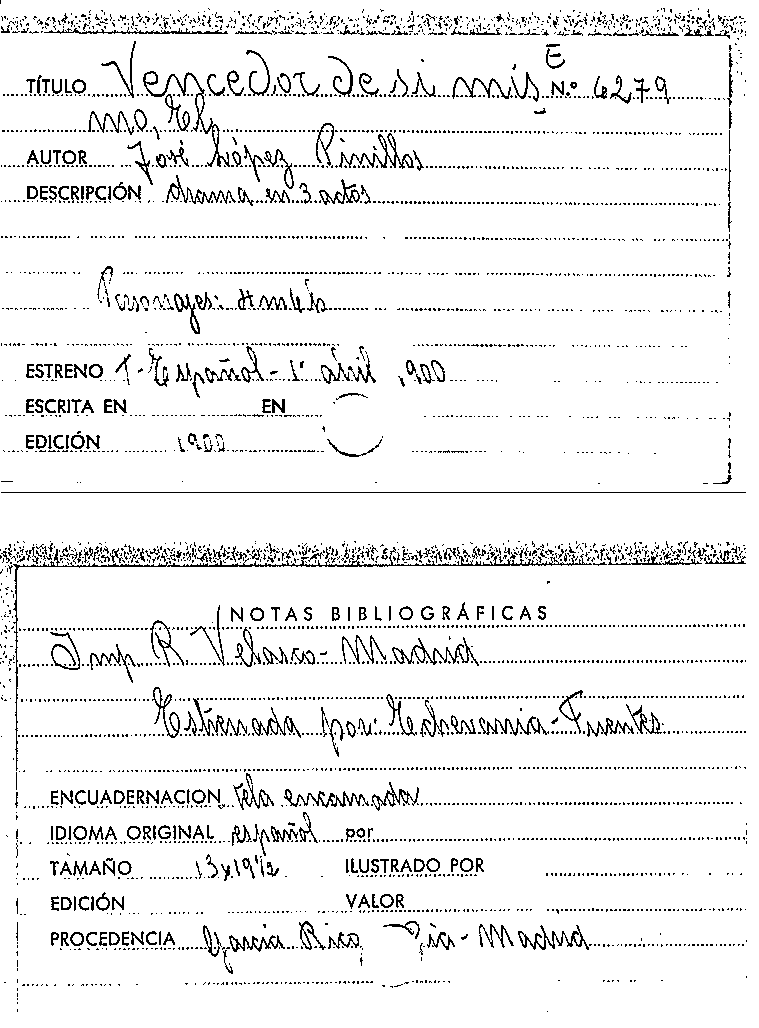 E
TÍTULO Vencedor de si mis Nº 6279
mo, El
AUTOR José López Pinillos
DESCRIPCIÓN drama en 3 actos
Personajes:
ESTRENO T-Español-1º abril 1900
ESCRITA EN EN
EDICIÓN 1900
NOTAS BIBLIOGRÁFICAS
Imp R. Velasco-Madrid
Estrenada por: Echevarria-Fuentes
ENCUADERNACION tela encarnada
IDIOMA ORIGINAL español por
TAMAÑO 13x19½ ILUSTRADO POR
EDICIÓN VALOR
PROCEDENCIA García Rico, Cia-Madrid